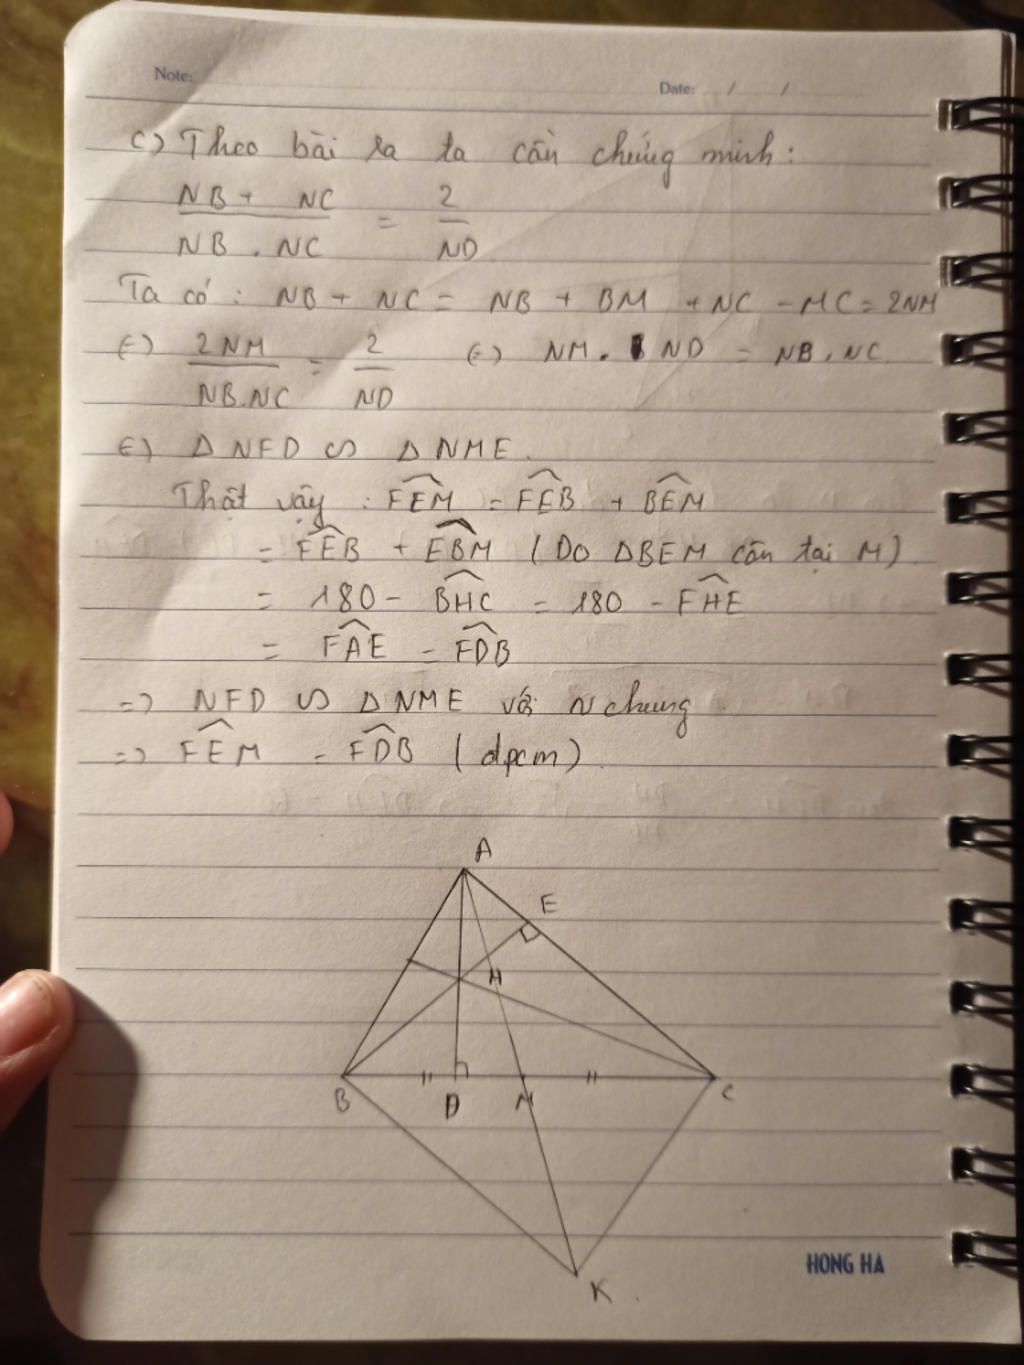 Note:
Date: / /
c) Theo bài ra ta cần chứng minh:
NB + NC / NB . NC = 2 / ND
Ta có : NB + NC = NB + BM + NC - MC = 2NM
(=) 2NM / NB.NC = 2 / ND (=) NM . ND = NB . NC
(=) Δ NFD ∽ Δ NME.
Thật vậy : FEM = FEB + BEM
= FEB + EBM (Do ΔBEM cân tại M)
= 180 - BHC = 180 - FHE
= FAE = FDB
=> NFD ∽ Δ NME với N chung
=> FEM = FDB (dpcm).
A
E
H
B D M C
K
HONG HA